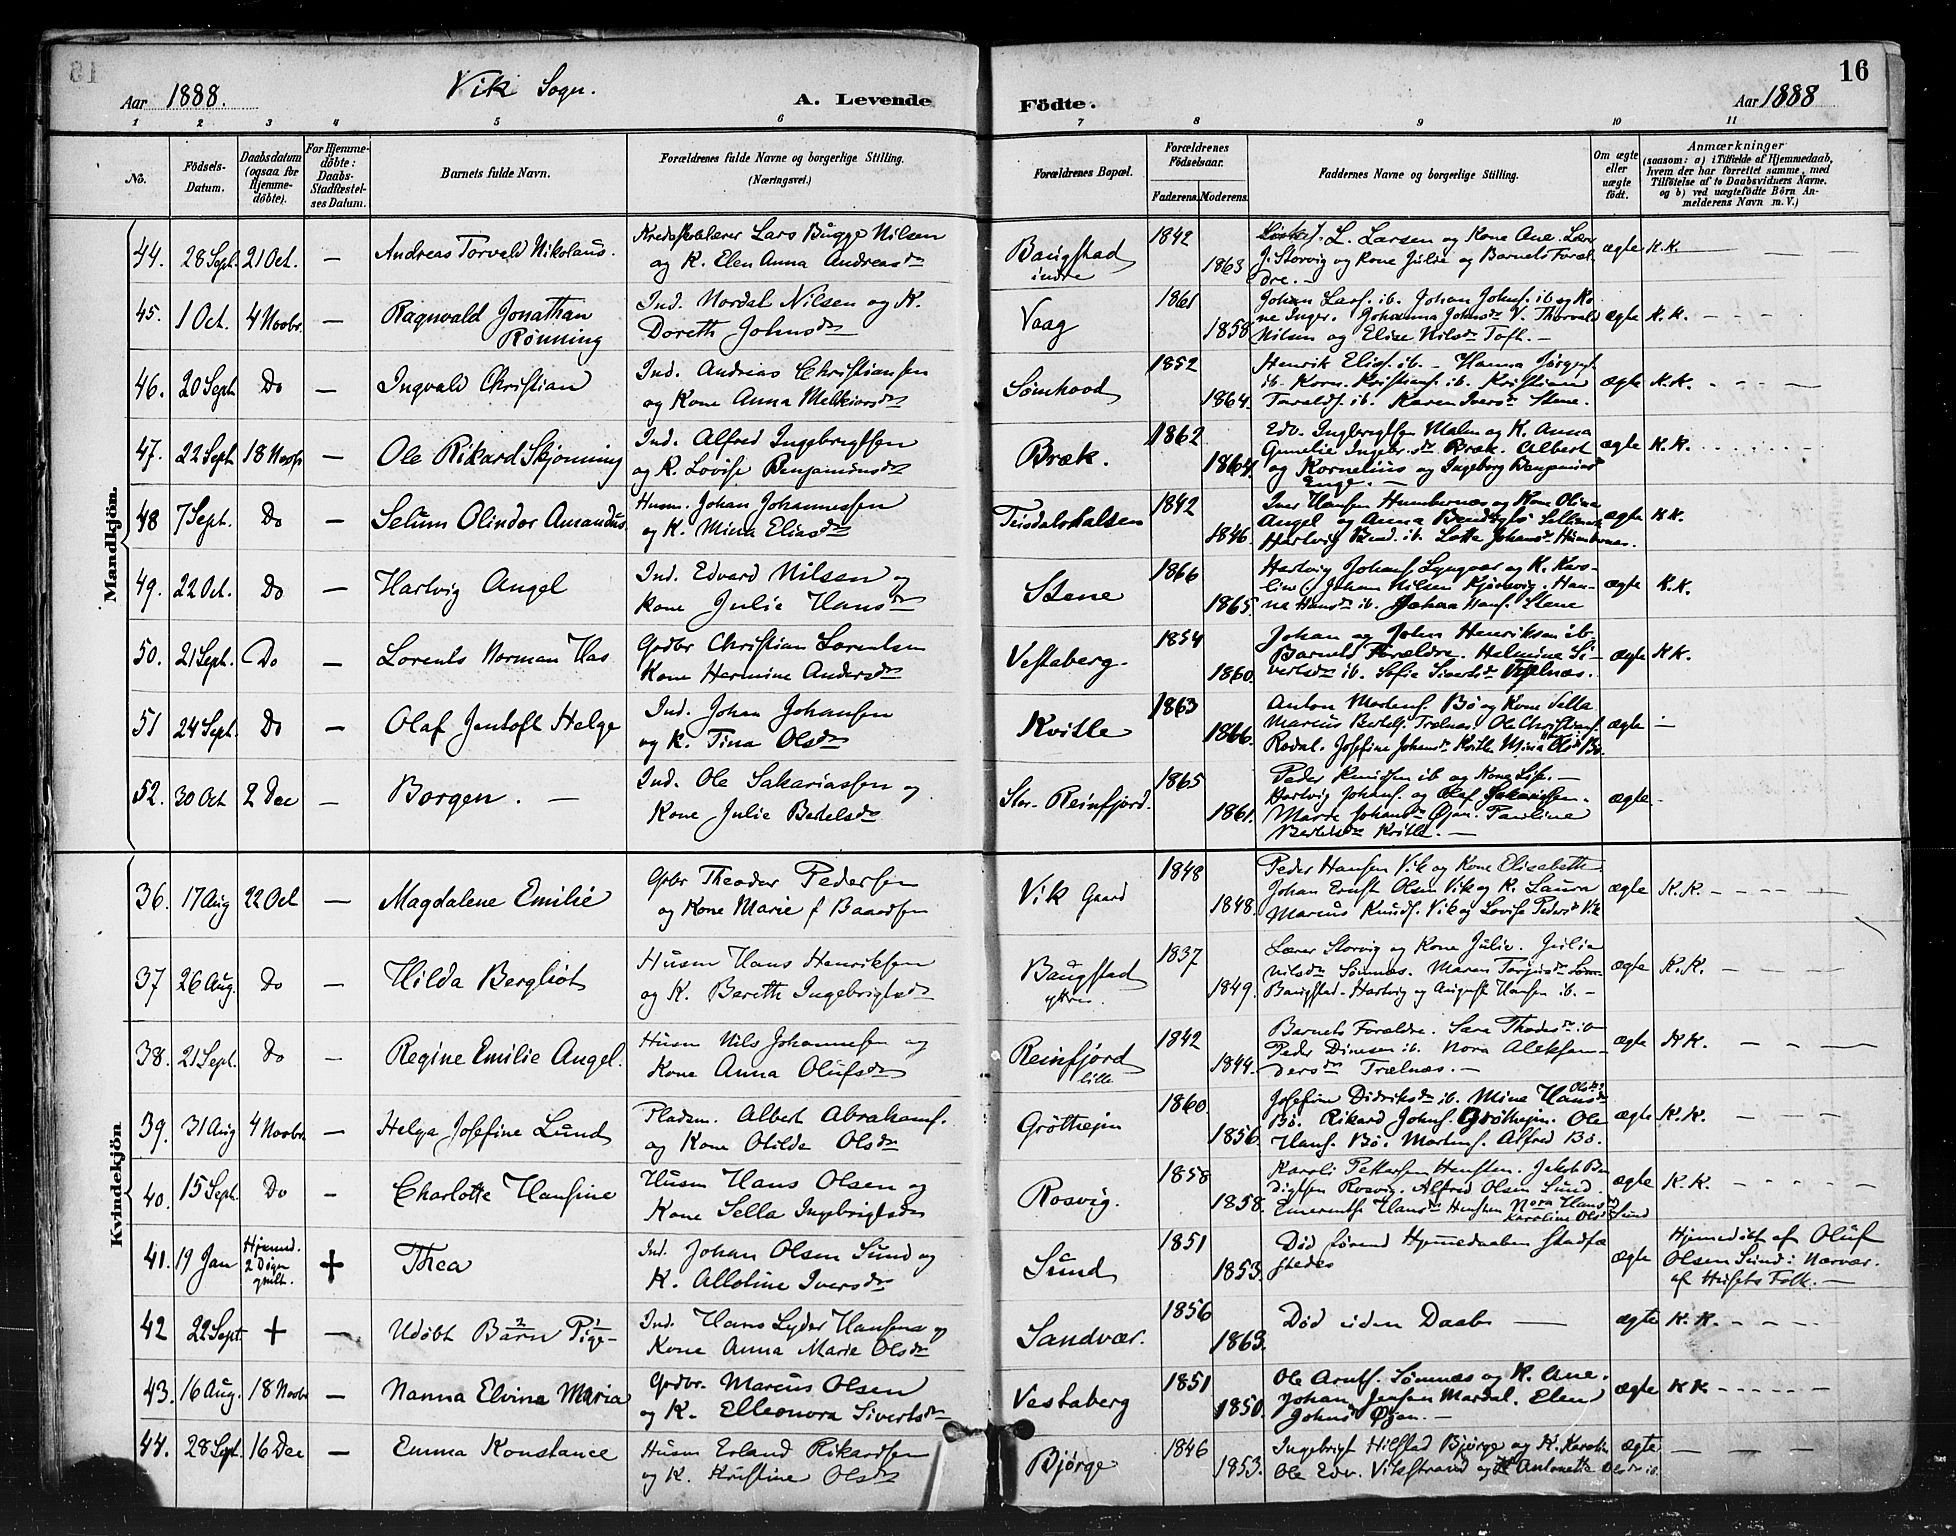 16
Aar 1888. Vik Sogn. A. Levende Födte. Aar 1888
1 2 3 4 5 6 7 8 9 10 11
No.
Födsels-Datum.
Daabsdatum (ogsaa for Hjemmedöbte).
For Hjemmedöbte: Daabs-Stadfæstelses Datum.
Barnets fulde Navn.
Forældrenes fulde Navne og borgerlige Stilling. (Næringsvei.)
Forældrenes Bopæl.
Forældrenes Födselsaar.
Faderens. Moderens.
Faddernes Navne og borgerlige Stilling.
Om ægte eller uægte födt.
Anmærkninger
(saasom: a) i Tilfælde af Hjemmedaab, hvem der har forrettet samme, med Tilföielse af to Daabsvidners Navne, og b) ved uægtefödte Börn Anmelderens Navn m. V.)
Mandkjön.
44. 28 Sept. 21 Oct. — Andreas Torvald Nikolaus.
Lars Bugge Nilsen
og K. Elen Anna Andreasdr
Baugstad indre 1842 1863
L. Larsen og Kone Ane. Lær
J. Storvig og Kone Julie og Barnets Foræl
dre. — ægte K.K. —
45. 1 Oct. 4 Novbr. — Ragnvald Jonathan Rönning
Ind. Nordal Nilsen og K.
Doreth Johnsdr
Vaag 1861 1858
Johan Larsf. ib. Johan Johnf. ib og Ko
ne Inger. Johanna Johnsdr V. Thorvald
Nilsen og Elise Nilsdr Toft. — ægte K.K. — —
46. 20 Sept Do — Ingvald Christian
Ind. Andreas Christiansen
og Kone Anna Melkiorsdr
Sömhovd 1852 1864.
Henrik Elisf. ib. — Hanna Jörgensf
ib. Korn. Kristiansf. ib. Kristian
Taraldsf. ib. Karen Iversdr Stene. ægte K.K. — —
47. 22 Sept 18 Novbr — Ole Rikard Skjönning
Ind. Alfred Ingebrigtsen
og K. Lovise Benjaminsdr
Bræk. 1862 1864.
Edv. Ingebrigtsen Malm og K. Anna
Gunelie Ingebr.dr Bræk. Albert
og Kornelius og Ingeborg Benjamins
Enge. — ægte K.K.
48 7 Sept. Do — Selum Olindor Amandus.
Husm. Johan Johannessen
og K. Mina Eliasdr
Teisdalshalsen 1842 1846.
Iver Hansen Humbernæs og Kone Olina
Angel og Anna
Hartvig Bend. ib. Lotte Johansdr Humbernæs. ægte K.K.
49. 22 Oct. Do — Hartvig Angel
Ind. Edvard Nilsen og
Kone Julie Hansdr
Stene 1866 1865.
Hartvig Johanf. Lyngvær og K. Karo-
line. Johan Nilsen Kjölsvig. Han-
na Hansdr ib. Johan Hansf. Stene ægte K.K.
50. 21 Sept. Do — Lorents Norman Has
Grdbr Christian Lorentsen
Kone Hermine Andersdr
Vestaberg. 1854 1860.
Johan og John Henriksen ib.
Barnets Forældre. Helmine Si-
vertsdr ib. Sofie Sivertsdr ægte K.K.
51 24 Sept. Do — Olaf Jentoft Helge
Ind. Johan Johansen
og K. Tina Olsdr
Kvitle 1863 1866.
Anton Martensf Bö og Kone Sella
Marcus Bertelsf Trælnæs. Ole Christiansf.
Rodal. Josefine Johansdr Kvitle Mina Olsdr Bö. ægte —
52. 30 Oct 2 Dec — Borgen. —
Ind. Ole Sakariassen og
Kone Julie Bertelsdr
Stor-Reinfjord. 1865 1861.
Peder Knudsen ib og Kone Lise. —
Hartvig Johanf. og Olaf Sakariassen.
Marie Johansdr Öjen. Pauline
Bertelsdr Kvitle. — ægte.
Kvindekjön
36. 17 Aug 22 Oct — Magdalene Emilie
Grbr Theodor Pedersen
og Kone Marie f Baardsen
Vik Gaard 1848 1848.
Peder Hansen Vik og Kone Elisabeth
Johan Ernst Olsen Vik og K. Laura
Marcus Knudsf. Vik og Lovise Pedersdr Vik ægte K.K. — —
37 26 Aug. Do — Hilda Bergliot
Husm Hans Henriksen
og K. Bereth Ingebrigtsdr
Baugstad ytre. 1837 1849.
Lærer Storvig og Kone Julie. Julia
Nilsdr Sömnæs. Maren Torgersdr Söm-
Baugstad. Hartvig og August Hansen ib. — ægte K.K. —
38. 21 Sept. Do — Regine Emilie Angel.
Husm Nils Johannesen og
Kone Anna Olufsdr
Reinfjord lille 1842 1844.
Barnets Forældre. Sara Thodesdr ib
Peder Dinesen ib. Nora Aleksan-
dersdr Trælnæs. — ægte K.K. — —
39. 31 Aug 4 Novbr. — Helga Josefine Lund
Pladsm. Albert Abrahamsf.
og Kone Otilde Olsdr
Gröttheim 1860. 1856.
Josefine Didriksdr ib. Mina Hansdr Olsdr
Bö. Rikard Johnsf. Gröttheim. Ole
Hansf. Bö. Martensf. Alfred Bö. ægte K.K. — —
40. 15 Sept. Do — Charlotte Hansine
Husm Hans Olsen og
Kone Sella Ingebrigtsdr
Rosvig. 1858 1858.
Karoli Pettersen Henften. Jakob Ben
digtsen Rosvig. Alfred Olsen Sund.
Emerentse Hansdr Henften Nora Hansdr
Karoline Olsdr Sund ægte K.K. — —
41. 19 Jan Hjemmd. 2 Döge gmlt. + Thea
Ind. Johan Olsen Sund og
K. Allotine Iversdr
Sund 1851 1853.
Död förend Hjemmedaaben stadfæ
stedes ægte Hjemmedöbt af Oluf
Olsen Sund: Nærvær.
af Husets Folk. —
42 22 Sept + — Udöbt Barn Pige
Ind. Hans Lyder Hansen og
Kone Anna Maria Olsdr
Sandvær. 1856 1863.
Död uden Daab — ægte K.K. — —
43. 16 Aug. 18 Novbr — Nanna Elvina Maria
Grdbr. Marcus Olsen
og K. Elleonora Sivertsdr
Vestaberg 1851 1850.
Ole Arntsf. Sömnæs og K. Ane.
Johan Jensen Mardal. Elen
Johnsdr Öjen. — ægte K.K. — —
44. 28 Sept. 16 Dec — Emma Konstance
Husm Erland Rikardsen
og K. Kristine Olsdr
Bjørge 1846 1853.
Ingebrigt Hilstad Bjørge og K. Karolin
Ole Edv. Vikstrand og K Antonette Olsdr ib. ægte — —